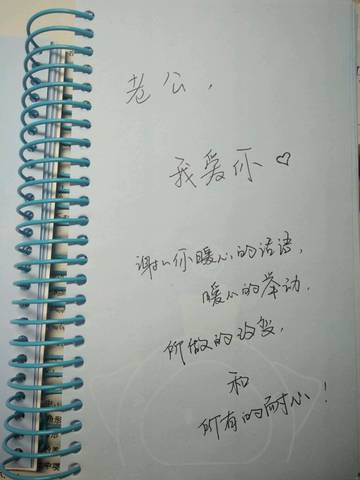 老公，
我爱你♡
谢谢你暖心的话语，
暖心的举动，
所做的改变，
和
所有的耐心！